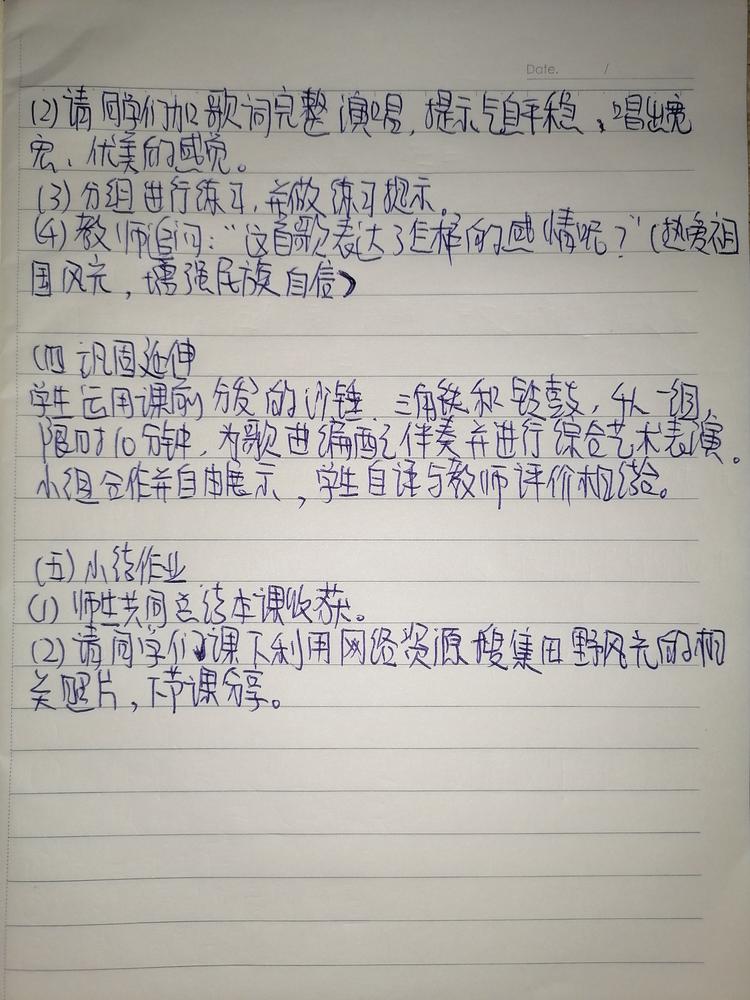 Date.       /
(2)请同学们加歌词完整演唱，提示气息平稳，唱出宽
宏、优美的感觉。
(3)分组进行练习，并做练习提示。
(4)教师追问：“这首歌表达了怎样的感情呢？”(热爱祖
国风光，增强民族自信)
(四)巩固延伸
学生运用课前分发的沙锤、三角铁和铃鼓，4人一组，
限时10分钟，为歌曲编配伴奏并进行综合艺术表演。
小组合作并自由展示，学生自评与教师评价相结合。
(五)小结作业
(1)师生共同总结本课收获。
(2)请同学们课下利用网络资源搜集田野风光的相
关照片，下节课分享。